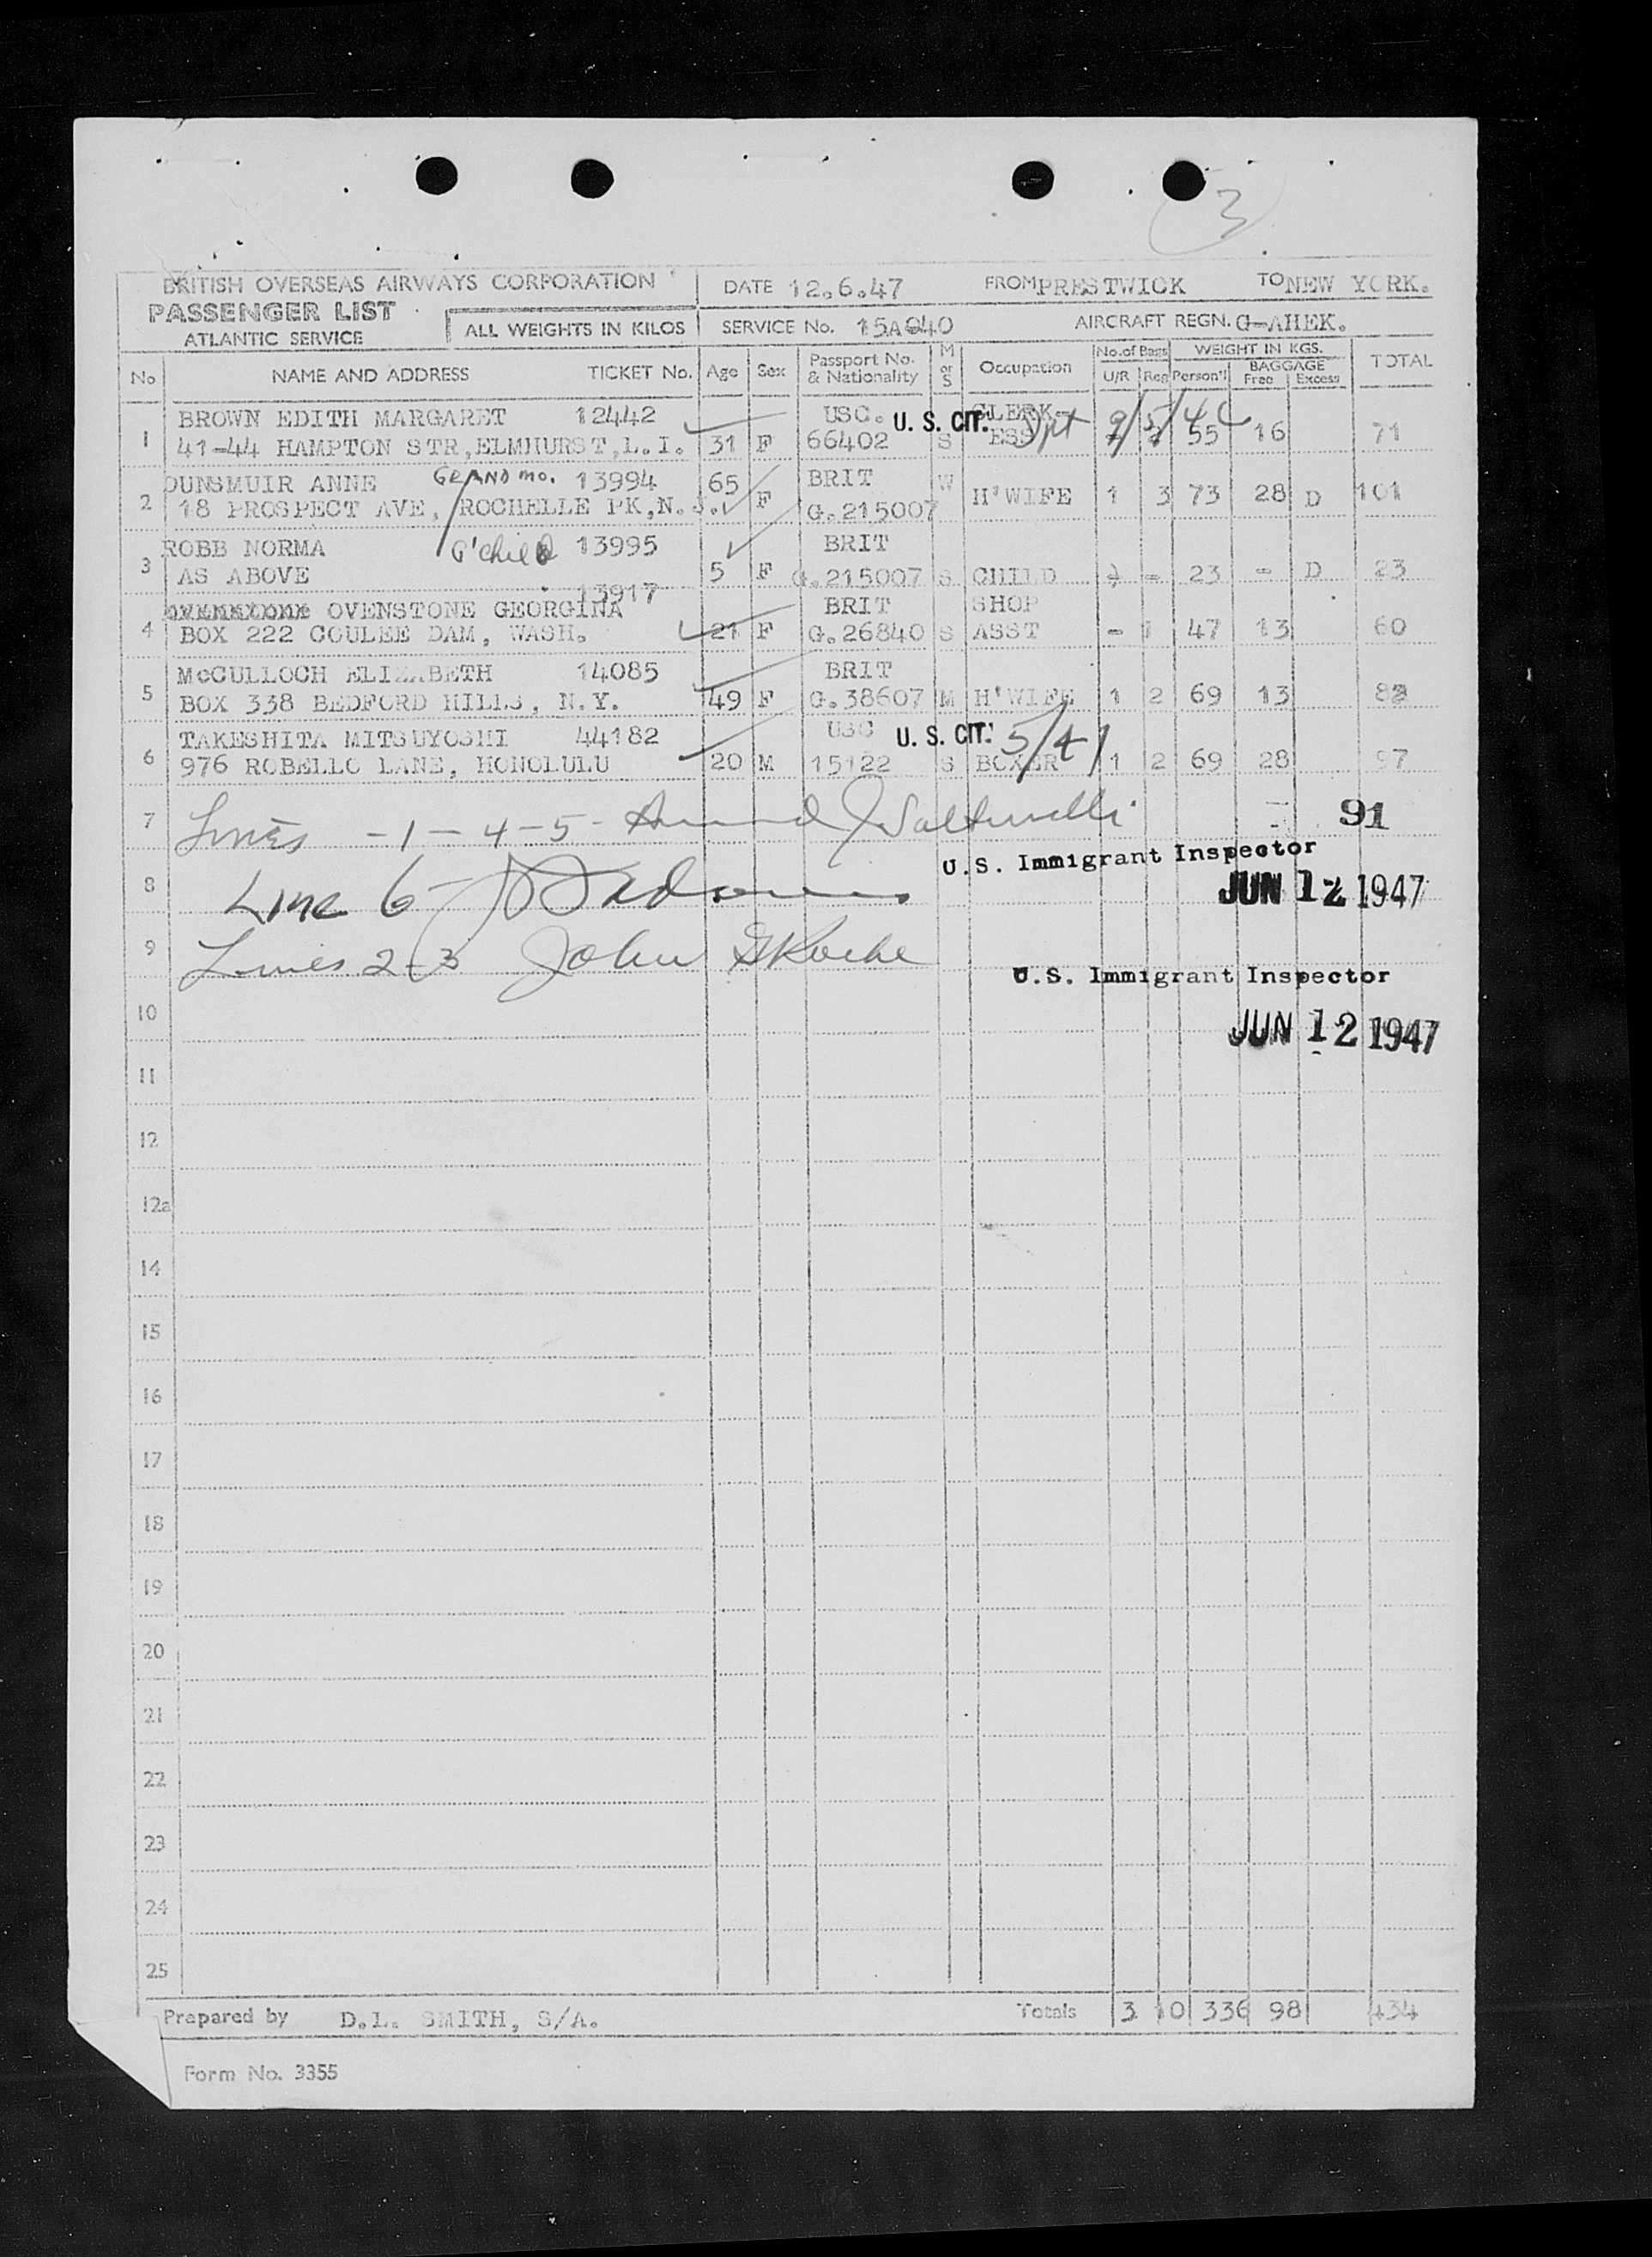 3
BRITISH OVERSEAS AIRWAYS CORPORATION DATE 12.6.47 FROM PRESTWICK TO NEW YORK.
PASSENGER LIST
ATLANTIC SERVICE ALL WEIGHTS IN KILOS SERVICE No. 15A040 AIRCRAFT REGN. G-AHEK.
No NAME AND ADDRESS TICKET No. Age Sex Passport No. & Nationality M or S Occupation No. of Bags U/R Reg WEIGHT IN KGS. Person'l BAGGAGE Free Excess TOTAL
BROWN EDITH MARGARET 12442 USC. U. S. CIT. CLERK- 9/5/46
1 41-44 HAMPTON STR, ELMHURST, L.I. 31 F 66402 S ESS 55 16 71
DUNSMUIR ANNE GRANDMO. 13994 65 BRIT W
2 18 PROSPECT AVE, ROCHELLE PK, N.J. F G.215007 H'WIFE 1 3 73 28 D 101
ROBB NORMA G'child 13995 BRIT
3 AS ABOVE 5 F G.215007 S CHILD - 23 - D 23
13917
OVENSTONE GEORGINA BRIT SHOP
4 BOX 222 COULEE DAM, WASH. 21 F G.26840 S ASST - 1 47 13 60
McCULLOCH ELIZABETH 14085 BRIT
5 BOX 338 BEDFORD HILLS, N.Y. 49 F G.38607 M H'WIFE 1 2 69 13 82
TAKESHITA MITSUYOSHI 44182 USC U. S. CIT. 5/47
6 976 ROBELLO LANE, HONOLULU 20 M 15122 S BOXER 1 2 69 28 97
7 Lines - 1 - 4 - 5 - 91
U.S. Immigrant Inspector
8 Line 6 JUN 12 1947
9 Lines 2-3 John
U.S. Immigrant Inspector
10
JUN 12 1947
11
12
12a
14
15
16
17
18
19
20
21
22
23
24
25
Prepared by D.L. SMITH, S/A. Totals 3 10 336 98 434
Form No. 3355